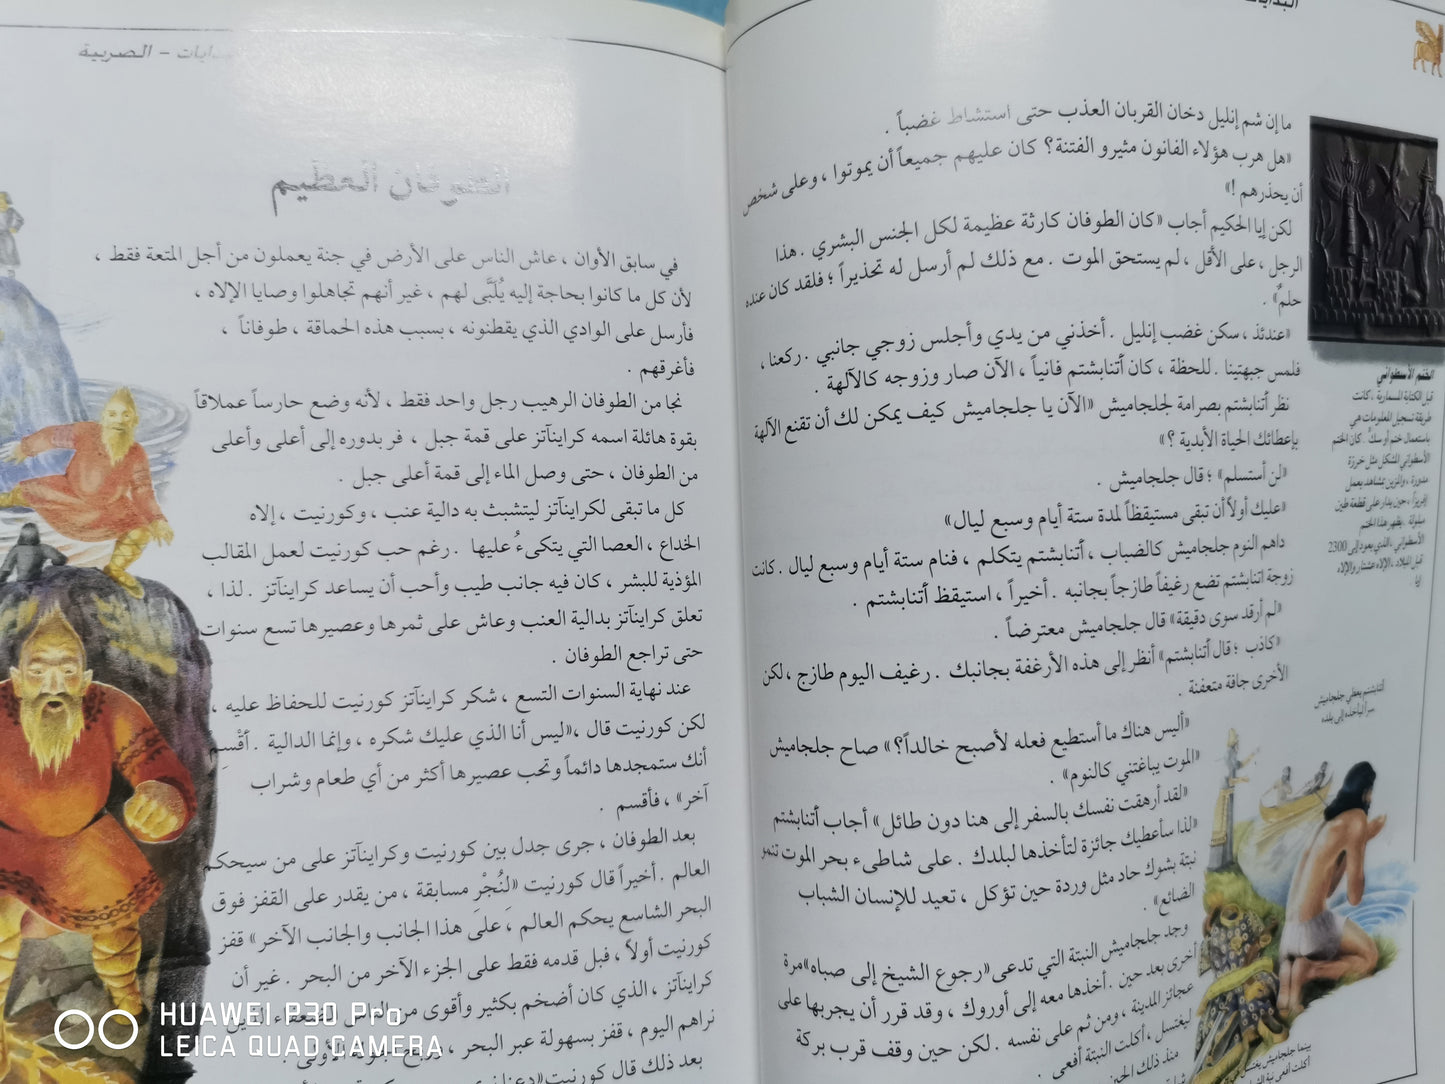 البدايات
ما إن شم إنليل دخان القربان العذب حتى استشاط غضباً .
«هل هرب هؤلاء الفانون مثيرو الفتنة؟ كان عليهم جميعاً أن يموتوا ، وعلى شخص
أن يحذرهم !»
لكن إيا الحكيم أجاب «كان الطوفان كارثة عظيمة لكل الجنس البشري . هذا
الرجل ، على الأقل ، لم يستحق الموت . مع ذلك لم أرسل له تحذيراً ؛ فلقد كان عنده
حلمٌ» .
«عندئذ ، سكن غضب إنليل . أخذني من يدي وأجلس زوجي جانبي . ركعنا ،
فلمس جبهتينا . للحظة ، كان أتنابشتم فانياً ، الآن صار وزوجه كالآلهة .
نظر أتنابشتم بصرامة لجلجاميش «الآن يا جلجاميش كيف يمكن لك أن تقنع الآلهة
بإعطائك الحياة الأبدية ؟»
«لن أستسلم» ؛ قال جلجاميش .
«عليك أولاً أن تبقى مستيقظاً لمدة ستة أيام وسبع ليال»
داهم النوم جلجاميش كالضباب ، أتنابشتم يتكلم ، فنام ستة أيام وسبع ليال . كانت
زوجة اتنابشتم تضع رغيفاً طازجاً بجانبه . أخيراً ، استيقظ أتنابشتم .
«لم أرقد سوى دقيقة» قال جلجاميش معترضاً .
«كاذب ؛ قال أتنابشتم» أنظر إلى هذه الأرغفة بجانبك . رغيف اليوم طازج ، لكن
الأخرى جافة متعفنة .
«أليس هناك ما أستطيع فعله لأصبح خالداً؟» صاح جلجاميش
«الموت يباغتني كالنوم» .
«لقد أرهقت نفسك بالسفر إلى هنا دون طائل» أجاب أتنابشتم
«لذا سأعطيك جائزة لتأخذها لبلدك . على شاطىء بحر الموت تنمو
نبتة بشوك حاد مثل وردة حين تؤكل ، تعيد للإنسان الشباب
الضائع» .
وجد جلجاميش النبتة التي تدعى «رجوع الشيخ إلى صباه» مرة
أخرى بعد حين . أخذها معه إلى أوروك ، وقد قرر أن يجربها على
عجائز المدينة ، ومن ثم على نفسه . لكن حين وقف قرب بركة
ليغتسل ، أكلت النبتة أفعى .
منذ ذلك الحين
الختم الأسطواني
قبل الكتابة المسمارية ، كانت
طريقة تسجيل المعلومات هي
باستعمال ختم أو سك . كان الختم
الأسطواني المشكل مثل خرزة
مدورة ، والمزين بمشاهد يعمل
إفريزاً ، حين يدار على قطعة طين
مبلولة . يظهر هذا الختم
الأسطواني ، الذي يعود إلى 2300
قبل الميلاد ، الإلاه عشتار والإلاه
إيا
أتنابشتم يعطي جلجاميش
سراً ليأخذه إلى بلده
بينما جلجاميش يغتسل في
أكلت أفعى نبتة
البدايات – الصربية
الطوفان العظيم
في سابق الأوان ، عاش الناس على الأرض في جنة يعملون من أجل المتعة فقط ،
لأن كل ما كانوا بحاجة إليه يُلَبَّى لهم ، غير أنهم تجاهلوا وصايا الإلاه ،
فأرسل على الوادي الذي يقطنونه ، بسبب هذه الحماقة ، طوفاناً ،
فأغرقهم .
نجا من الطوفان الرهيب رجل واحد فقط ، لأنه وضع حارساً عملاقاً
بقوة هائلة اسمه كراينآتز على قمة جبل ، فر بدوره إلى أعلى وأعلى
من الطوفان ، حتى وصل الماء إلى قمة أعلى جبل .
كل ما تبقى لكراينآتز ليتشبث به دالية عنب ، وكورنيت ، إلاه
الخداع ، العصا التي يتكىءُ عليها . رغم حب كورنيت لعمل المقالب
المؤذية للبشر ، كان فيه جانب طيب وأحب أن يساعد كراينآتز . لذا ،
تعلق كراينآتز بدالية العنب وعاش على ثمرها وعصيرها تسع سنوات
حتى تراجع الطوفان .
عند نهاية السنوات التسع ، شكر كراينآتز كورنيت للحفاظ عليه ،
لكن كورنيت قال ، «ليس أنا الذي عليك شكره ، وإنما الدالية . أقْسِم
أنك ستمجدها دائماً وتحب عصيرها أكثر من أي طعام وشراب
آخر» ، فأقسم .
بعد الطوفان ، جرى جدل بين كورنيت وكراينآتز على من سيحكم
العالم . أخيراً قال كورنيت «لِنُجْرِ مسابقة ، من يقدر على القفز فوق
البحر الشاسع يحكم العالم ، على هذا الجانب والجانب الآخر» قفز
كورنيت أولاً ، فبل قدمه فقط على الجزء الآخر من البحر . غير أن
كراينآتز ، الذي كان أضخم بكثير وأقوى من الناس الضعفاء الذين
نراهم اليوم ، قفز بسهولة عبر البحر ، الأولى
بعد ذلك قال كورنيت «دعنا
HUAWEI P30 Pro
LEICA QUAD CAMERA